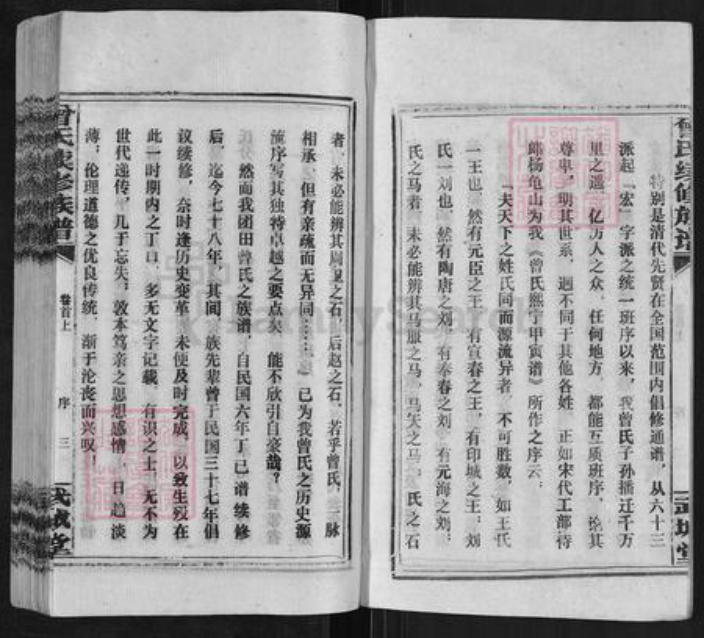 特别是清代先贤在全国范围内倡修通谱，从六十三
派起「宏」字派之统一班序以来，我曾氏子孙播迁千万
里之遥，亿万人之众，任何地方，都能互质班序，论其
尊卑，明其世系，迥不同于其他各姓，正如宋代工部侍
郎杨龟山为我《曾氏熙宁甲寅谱》所作之序云：
「夫天下之姓氏同而源流异者，不可胜数，如王氏
一王也，然有元臣之王，有宣春之王，有印城之王；刘
氏一刘也，然有陶唐之刘，有奉春之刘，有元海之刘；
氏之马者，未必能辨其马服之马，马矢之马。氏之石
者，未必能辨其周卫之石，后赵之石，若乎曾氏，一脉
相承，但有亲疏而无异同……」已为我曾氏之历史源
流序写其独特卓越之要点矣，能不欣引自豪哉？
然而我团田曾氏之族谱，自民国六年丁巳谱续修
后，迄今七十八年，其间，族先辈曾于民国三十七年倡
议续修，奈时逢历史变革，未便及时完成，以致生殁在
此一时期内之丁口，多无文字记载，有识之士，无不为
世代递传，几于忘失，敦本笃亲之思想感情，日趋淡
薄，伦理道德之优良传统，渐于沦丧而兴叹！
曾氏续修族谱
卷首上
序
三
武城堂
曾氏续修族谱
武城堂